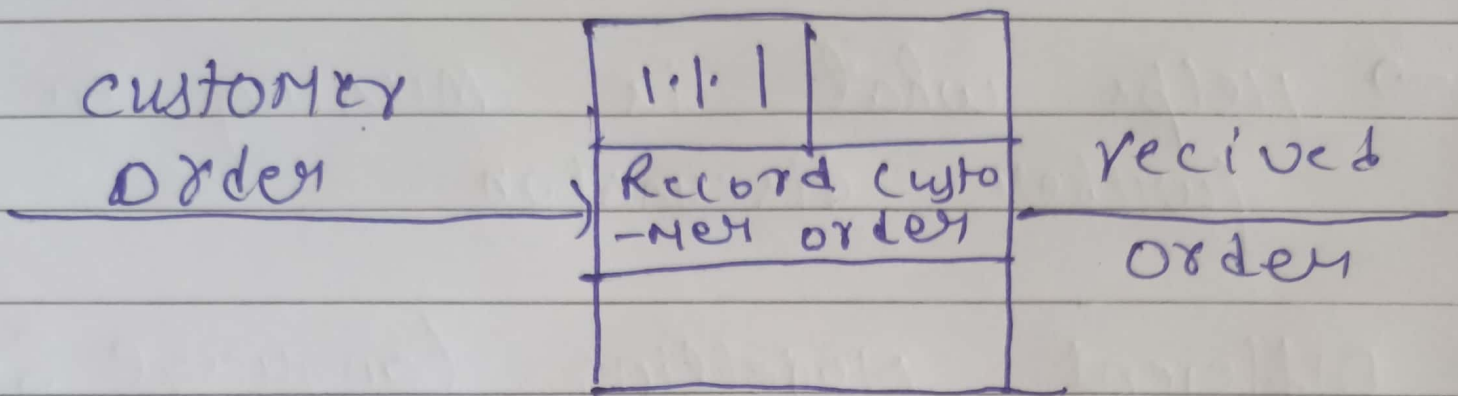 customer
order
1.1.1
Record custo
-mer order
recived
order